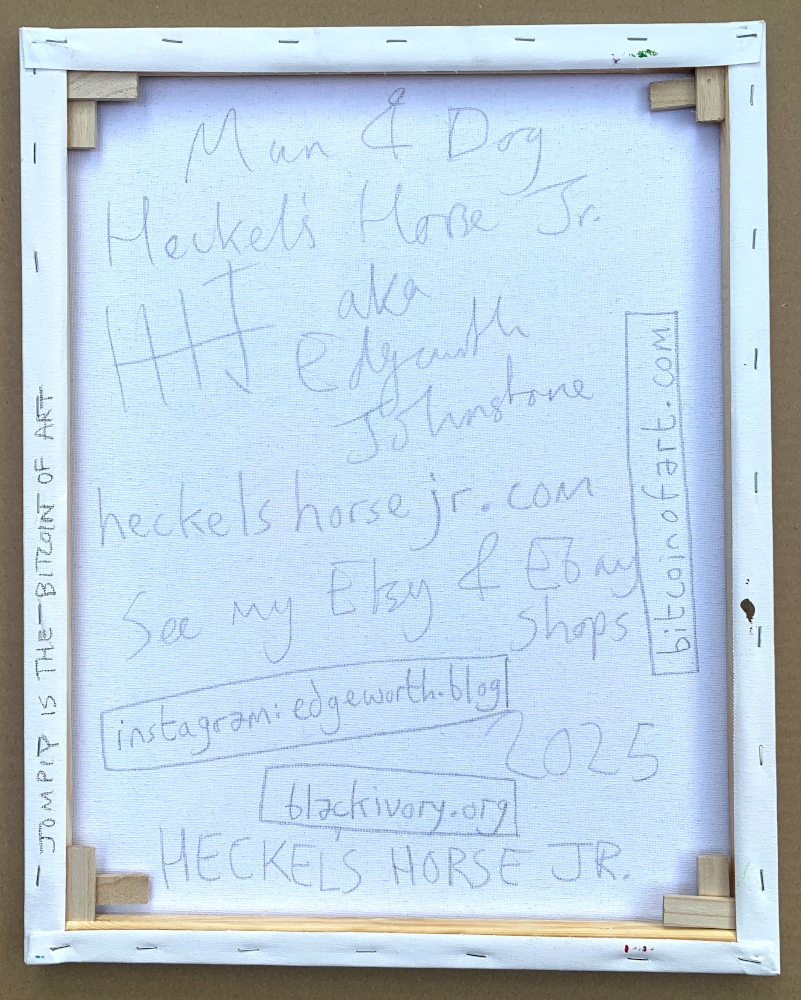 Man & Dog
Heckel's Horse Jr.
HHJ aka
Edgeworth
Johnstone
heckelshorsejr.com
See my Etsy & Ebay
shops
bitcoinofart.com
instagram:edgeworth.blog
2025
blackivory.org
HECKEL'S HORSE JR.
JOMPIP IS THE BITCOIN OF ART